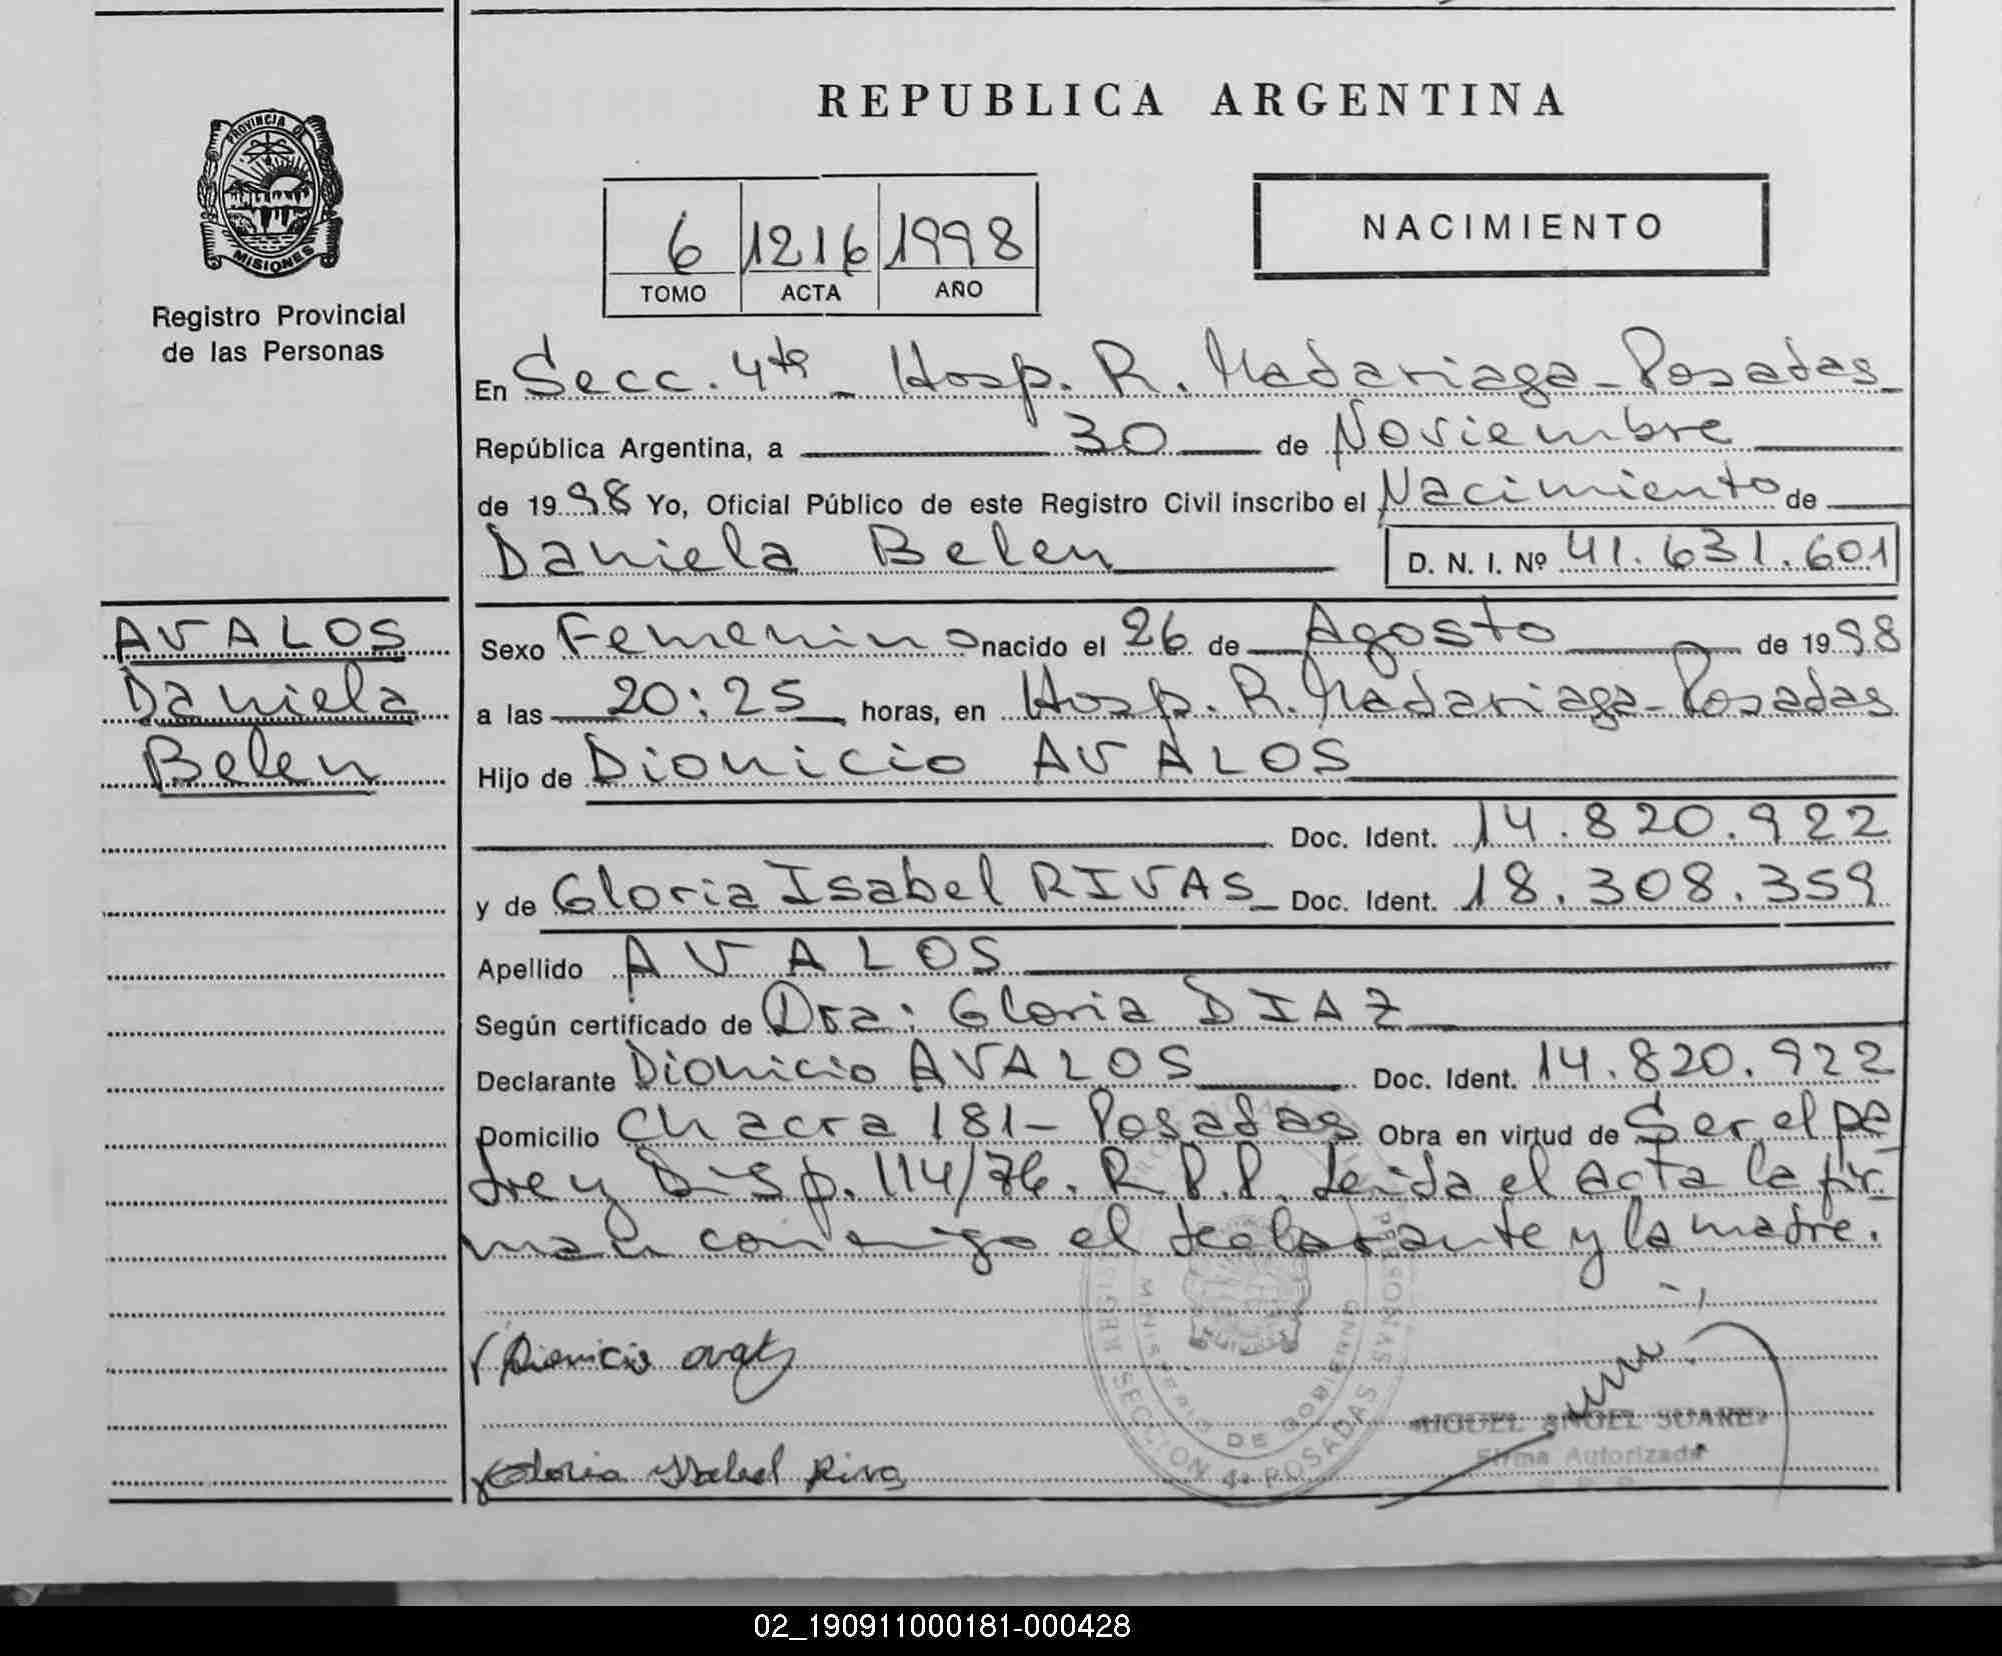 REPUBLICA ARGENTINA
PROVINCIA DE
MISIONES
Registro Provincial
de las Personas
6 1216 1998
TOMO ACTA AÑO
NACIMIENTO
En Secc. 4ta - Hosp. R. Madariaga - Posadas -
República Argentina, a 30 de Noviembre
de 1998 Yo, Oficial Público de este Registro Civil inscribo el Nacimiento de
Daniela Belen D. N. I. Nº 41.631.601
AVALOS
Daniela
Belen
Sexo Femenino nacido el 26 de Agosto de 1998
a las 20:25 horas, en Hosp. R. Madariaga - Posadas
Hijo de Dionicio AVALOS
Doc. Ident. 14.820.922
y de Gloria Isabel RIVAS Doc. Ident. 18.308.359
Apellido AVALOS
Según certificado de Dra: Gloria DIAZ
Declarante Dionicio AVALOS Doc. Ident. 14.820.922
Domicilio Chacra 181 - Posadas Obra en virtud de Ser el pa
dre y Disp. 114/76. R.P.P. Leida el acta la fir
man conmigo el declarante y la madre.
Dionicio
Gloria Isabel Riva
MINISTERIO DE GOBIERNO
SECCION 4ª POSADAS
MIGUEL ANGEL SUAREZ
Firma Autorizada
02_190911000181-000428